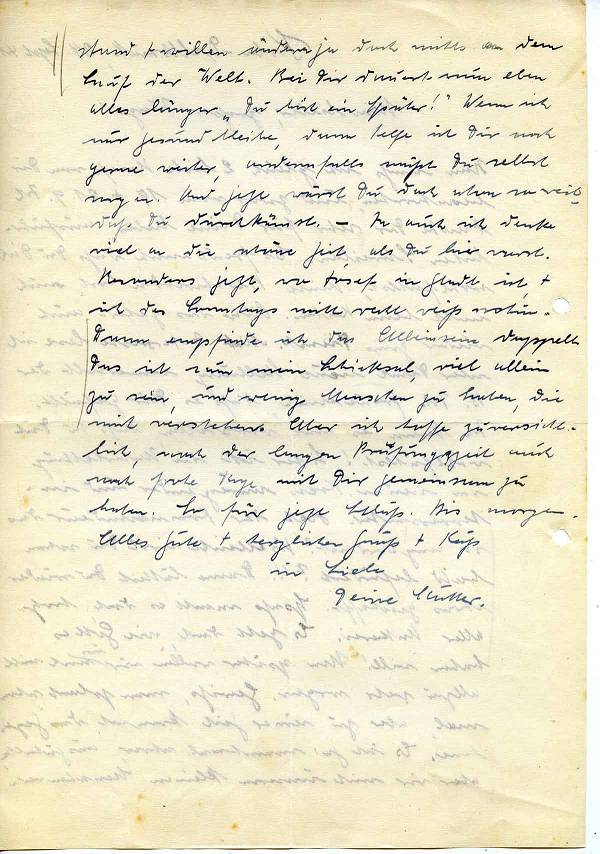 stund + willen ändern ja doch nichts an dem
Lauf der Welt. Bei Dir dauert nun eben
alles länger „Du bist ein Später!" Wenn ich
nur gesund bleibe, dann helfe ich Dir noch
gerne weiter, andernfalls mußt Du selbst
sorgen. Und jetzt wärst Du doch schon so weit
daß Du durchkämst. – Ja auch ich denke
viel an die schöne Zeit als Du hier warst.
Besonders jetzt, wo Josef in Stadt ist, +
ich des Sonntags nicht recht weiß wohin.
Dann empfinde ich das Alleinsein doppelt
Das ist nun mein Schicksal, viel allein
zu sein, und wenig Menschen zu haben, die
mich verstehen. Aber ich hoffe zuversicht-
lich, nach der langen Prüfungszeit auch
noch frohe Tage mit Dir gemeinsam zu
haben. So für jetzt Schluß. Bis morgen.
Alles Gute + herzlichen Gruß + Kuß
in Liebe
Deine Mutter.